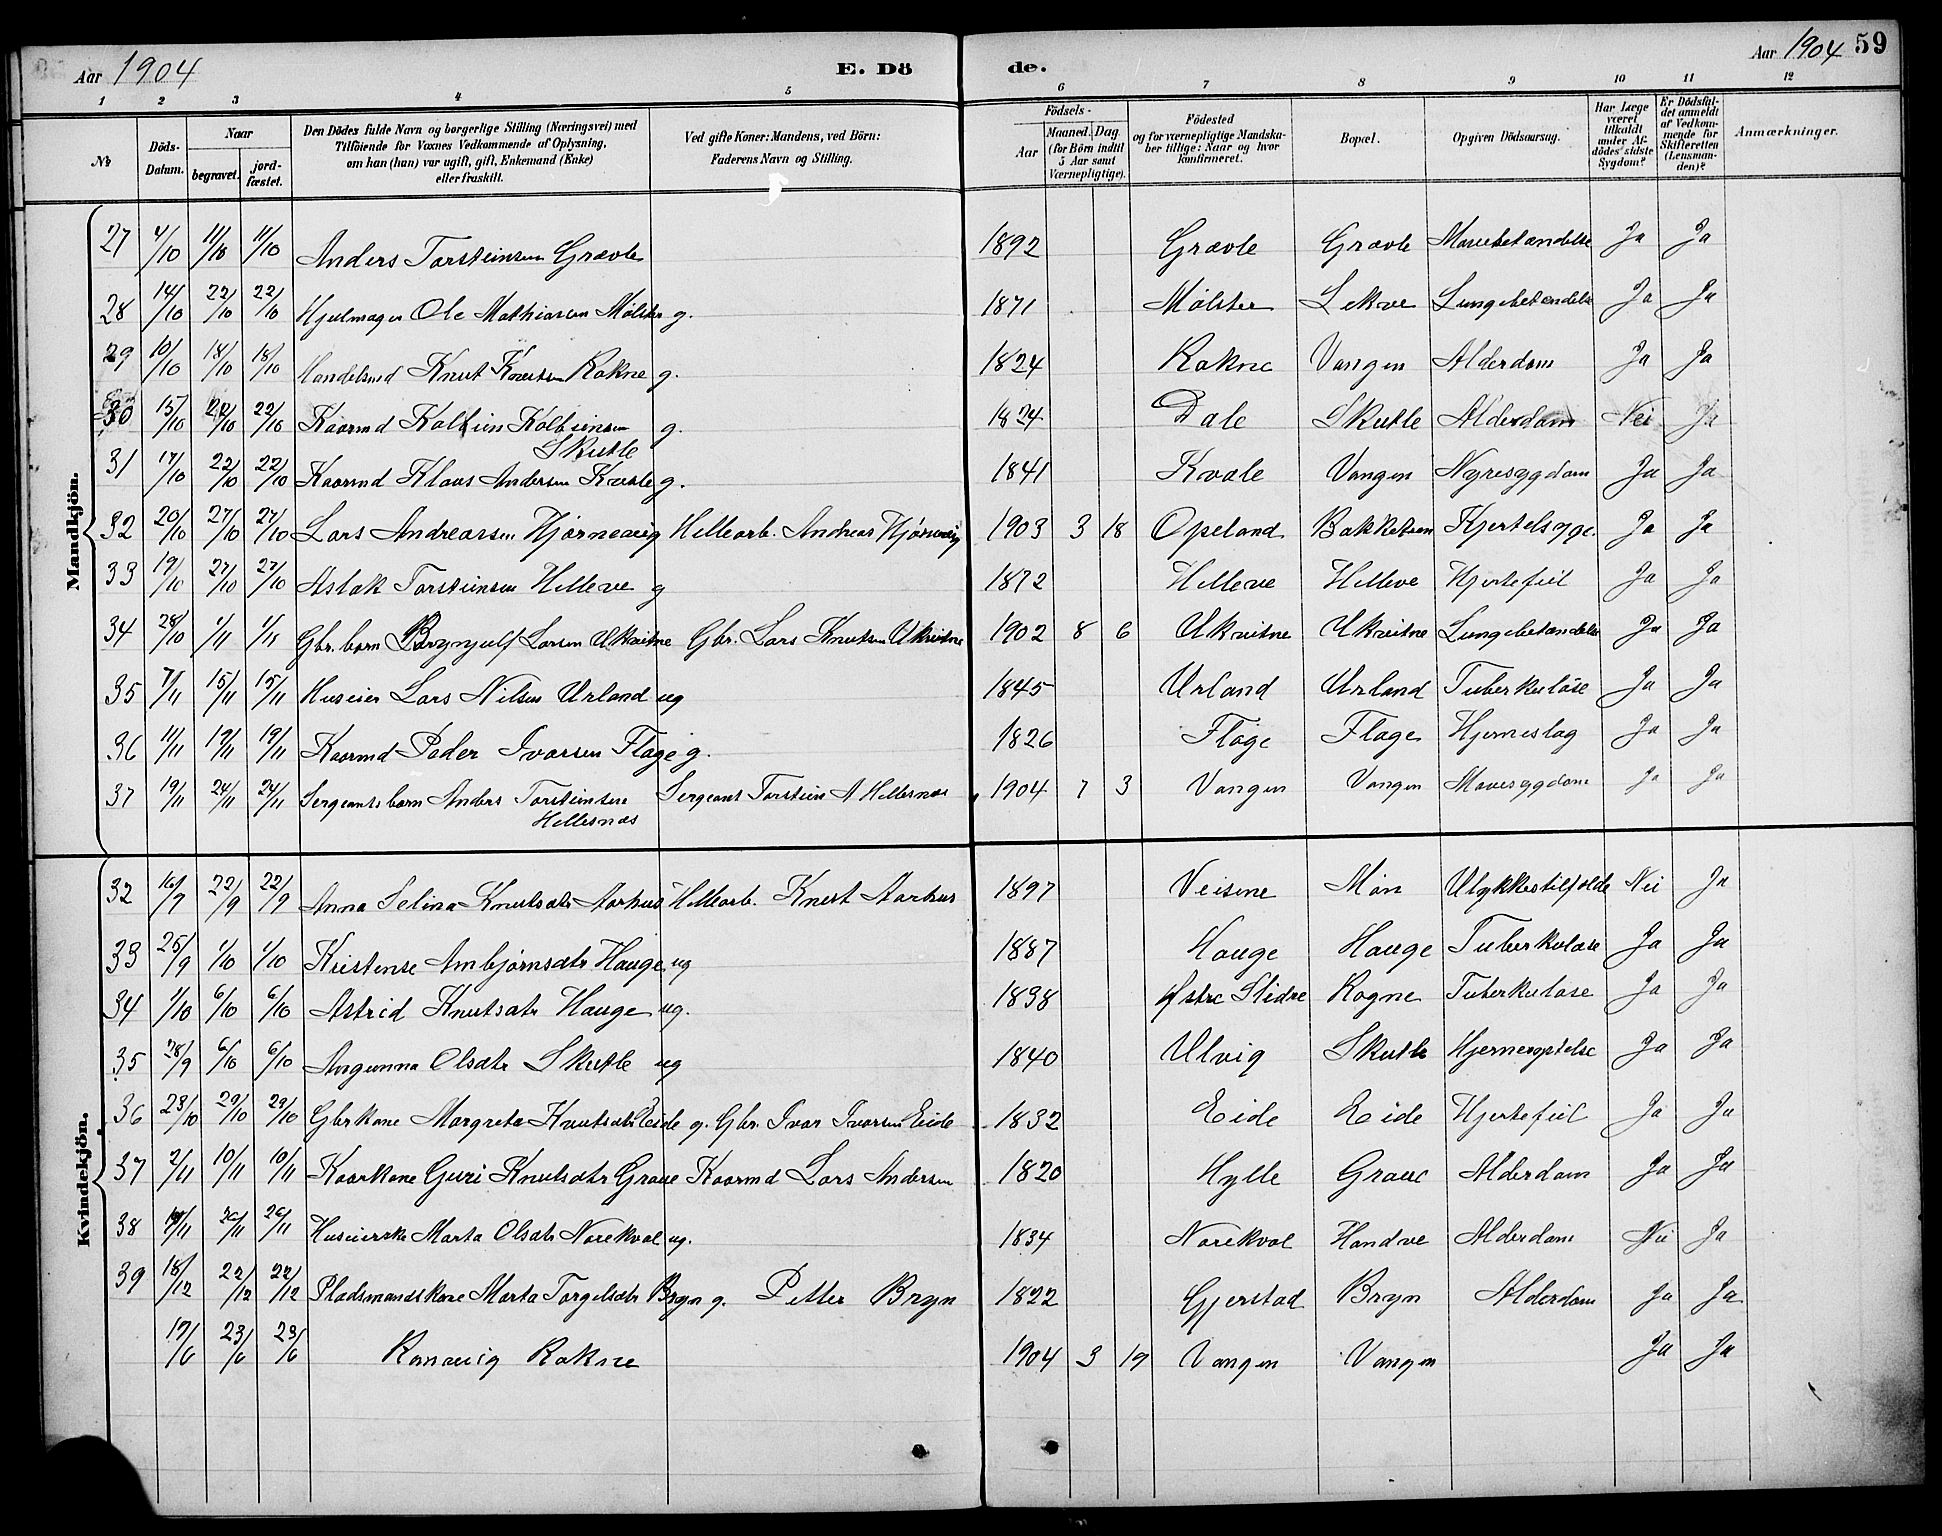 Aar 1904 E. Dö de. Aar 1904 59
1 2 3 4 5 6 7 8 9 10 11 12
№ Döds-Datum. Naar begravet. jordfæstet. Den Dödes fulde Navn og borgerlige Stilling (Næringsvei) med Tilföiende for Voxnes Vedkommende af Oplysning, om han (hun) var ugift, gift, Enkemand (Enke) eller fraskilt. Ved gifte Koner: Mandens, ved Börn: Faderens Navn og Stilling. Födsels- Aar Maaned. Dag (for Börn indtil 5 Aar samt Værnepligtige). Födested og for værnepligtige Mandskaber tillige: Naar og hvor konfirmeret. Bopæl. Opgiven Dödsaarsag. Har Læge været tilkaldt under Afdödes sidste Sygdom? Er Dödsfaldet anmeldt af Vedkommende for Skifteretten (Lensmanden)? Anmærkninger.
Mandkjön.
27 4/10 11/10 11/10 Anders Torsteinsen Græve 1892 Grævle Grævle Mavebetændelse Ja Ja
28 14/10 22/10 22/10 Hjulmager Ole Mathiasen Mølster g. 1871 Mølster Lekve Lungebetændelse Ja Ja
29 10/10 18/10 18/10 Handelsmd Knut Knutsen Rokne g. 1824 Rokne Vangen Alderdom Ja Ja
30 15/10 22/10 22/10 Kaarmd Kolbein Kolbeinsen g. 1824 Dale Skutle Alderdom Nei Ja
Skutle
31 17/10 22/10 22/10 Kaarmd Klaus Andersen Kvale g. 1841 Kvale Vangen Nyresygdom Ja Ja
32 20/10 27/10 27/10 Lars Andreassen Hjørnevig Hellearb. Andreas Hjørnevig 1903 3 18 Opeland Bakketun Kjertelsyge. Ja Ja
33 19/10 27/10 27/10 Aslak Torsteinsen Helleve g 1872 Helleve Helleve Hjertefeil Ja Ja
34 28/10 1/11 1/11 Gbr. barn Brynjulf Larsen Ukvitne Gbr. Lars Knutsen Ukvitne 1902 8 6 Ukvitne Ukvitne Lungebetændelse Ja Ja
35 7/11 15/11 15/11 Huseier Lars Nilsen Urland ug 1845 Urland Urland Tuberkuløse Ja Ja
36 11/11 19/11 19/11 Kaarmd Peder Ivarsen Flage g. 1826 Flage Flage Hjerneslag Ja Ja
37 19/11 24/11 24/11 Sergeants barn Anders Torsteinsen Sergeant Torstein A Hellesnæs 1904 7 3 Vangen Vangen Mavesygdom Ja Ja
Hellesnæs
Kvindekjön.
32 16/9 22/9 22/9 Anna Selina Knutsdtr Aarhus Hellearb. Knut Aarhus 1897 Veisene Møn Ulykkestilfælde Nei Ja
33 25/9 1/10 1/10 Kristense Arnbjørnsdtr Hauge ug 1887 Hauge Hauge Tuberkulose Ja Ja
34 1/10 6/10 6/10 Astrid Knutsdtr Hauge ug. 1838 Østre Slidre Rogne Tuberkulose Ja Ja
35 28/9 6/10 6/10 Angunna Olsdtr Skutle ug 1840 Ulvig Skutle Ja Ja
36 23/10 29/10 29/10 Gbrkone Margreta Knutsdtr Eide g. Gbr. Ivar Ivarsen Eide 1832 Eide Eide Hjertefeil Ja Ja
37 2/11 10/11 10/11 Kaarkone Guri Knutsdtr Graue Kaarmd Lars Andersen 1820 Hylle Graue Alderdom Ja Ja
38 19/11 26/11 26/11 Huseierske Marta Olsdtr Norekval ug. 1834 Norekval Handve Alderdom Nei Ja
39 18/12 22/12 22/12 Pladsmandskone Marta Torgelsdtr Bryn g. Petter Bryn 1822 Gjerstad Bryn Alderdom Ja Ja
17/6 23/6 23/6 Ranveig Rokne 1904 3 19 Vangen Vangen Ja Ja